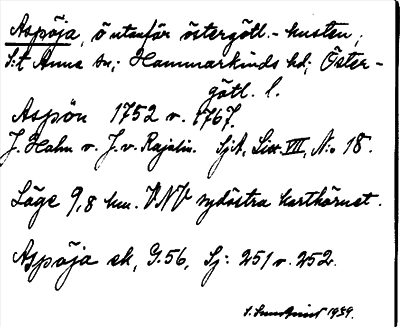 Aspöja, ö utanför östergötl.-kusten,
S:t Anna sn; Hammarkinds hd; Öster-
götl. l.
Aspön 1752 o. 1767.
J. Hahn o. J. v. Rajalin. SjA, Litt. VII, N:o 18.
Läge 9,8 km. VNV sydöstra karthörnet.
Aspöja ek, G:56, Sj: 251 o. 252.
S. Sundqvist 1939.